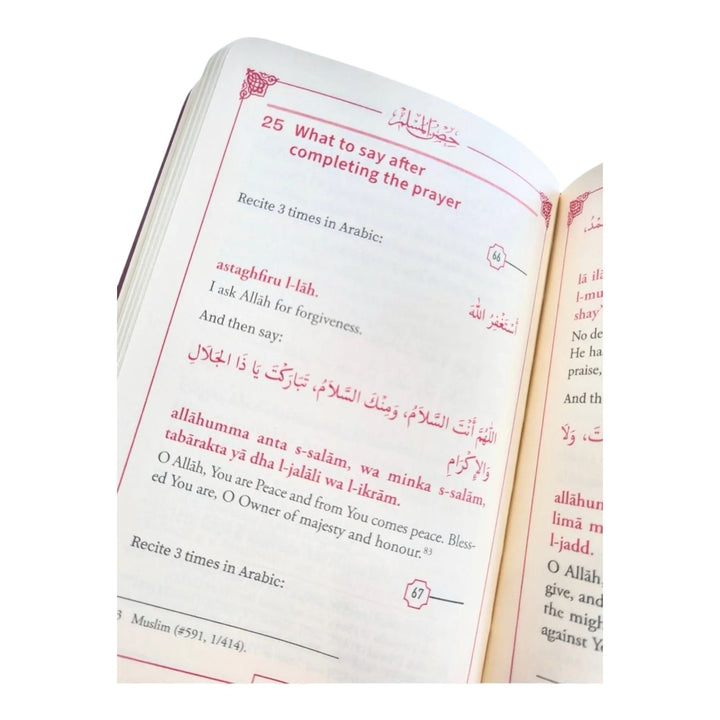 حصن المسلم
25 What to say after
completing the prayer
Recite 3 times in Arabic:
66
astaghfiru l-lāh.
أَسْتَغْفِرُ اللهَ
I ask Allāh for forgiveness.
And then say:
اللّٰهُمَّ أَنْتَ السَّلَامُ، وَمِنْكَ السَّلَامُ، تَبَارَكْتَ يَا ذَا الجَلَالِ
وَالإِكْرَامِ
allāhumma anta s-salām, wa minka s-salām,
tabārakta yā dha l-jalāli wa l-ikrām.
O Allāh, You are Peace and from You comes peace. Bless-
ed You are, O Owner of majesty and honour.⁸³
Recite 3 times in Arabic:
67
3 Muslim (#591, 1/414).
lā il
l-mu
shay'
No de
He ha
praise,
And th
ت، وَلَا
allāhum
limā m
l-jadd.
O Allāh,
give, and
the migh
against Yo